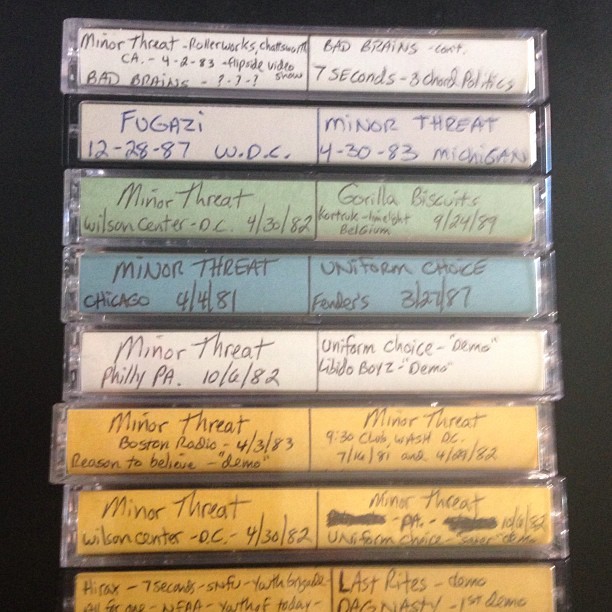 Minor Threat - Rollerworks, Chatsworth
CA. - 4-2-83 - flipside video
show
BAD BRAINS - ?-?-?
BAD BRAINS - cont.
7 SECONDS - 3 Chord Politics
FUGAZI
12-28-87 W.D.C.
MINOR THREAT
4-30-83 MICHIGAN
Minor Threat
Wilson Center - D.C. 4/30/82
Gorilla Biscuits
Belgium 9/24/89
MINOR THREAT
CHICAGO 4/4/81
UNIFORM CHOICE
Fender's 3/27/87
Minor Threat
Philly PA. 10/6/82
Uniform Choice - "Demo"
Libido Boyz - "Demo"
Minor Threat
Boston Radio - 4/3/83
Reason to believe - "demo"
Minor Threat
9:30 Club, WASH DC.
7/16/81 and 4/29/82
Minor Threat
Wilson Center - D.C. - 4/30/82
Minor Threat
- PA. - 10/6/82
Uniform Choice - demo
Hirax - 7 Seconds - SNFU - Youth brigade -
All for one - NFAA - Youth of today -
LAST Rites - demo
DAG NASTY - 1st demo